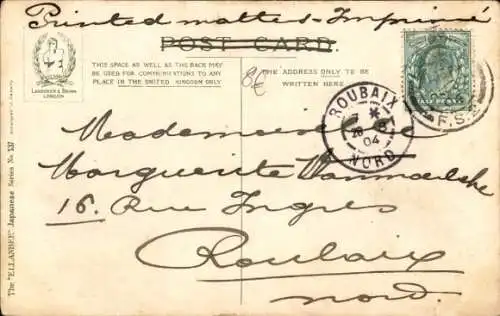 Printed matter - Imprimé
POST CARD.
LANDEKER & BROWN
LONDON
THIS SPACE AS WELL AS THE BACK MAY
BE USED FOR COMMUNICATIONS TO ANY
PLACE IN THE UNITED KINGDOM ONLY
THE ADDRESS ONLY TO BE
WRITTEN HERE
8€
HALF PENNY
F.S.
ROUBAIX
04
NORD
Mademoiselle
Marguerite
16. Rue Ingres
Roubaix
Nord.
The "ELLANBEE" Japanese Series No.